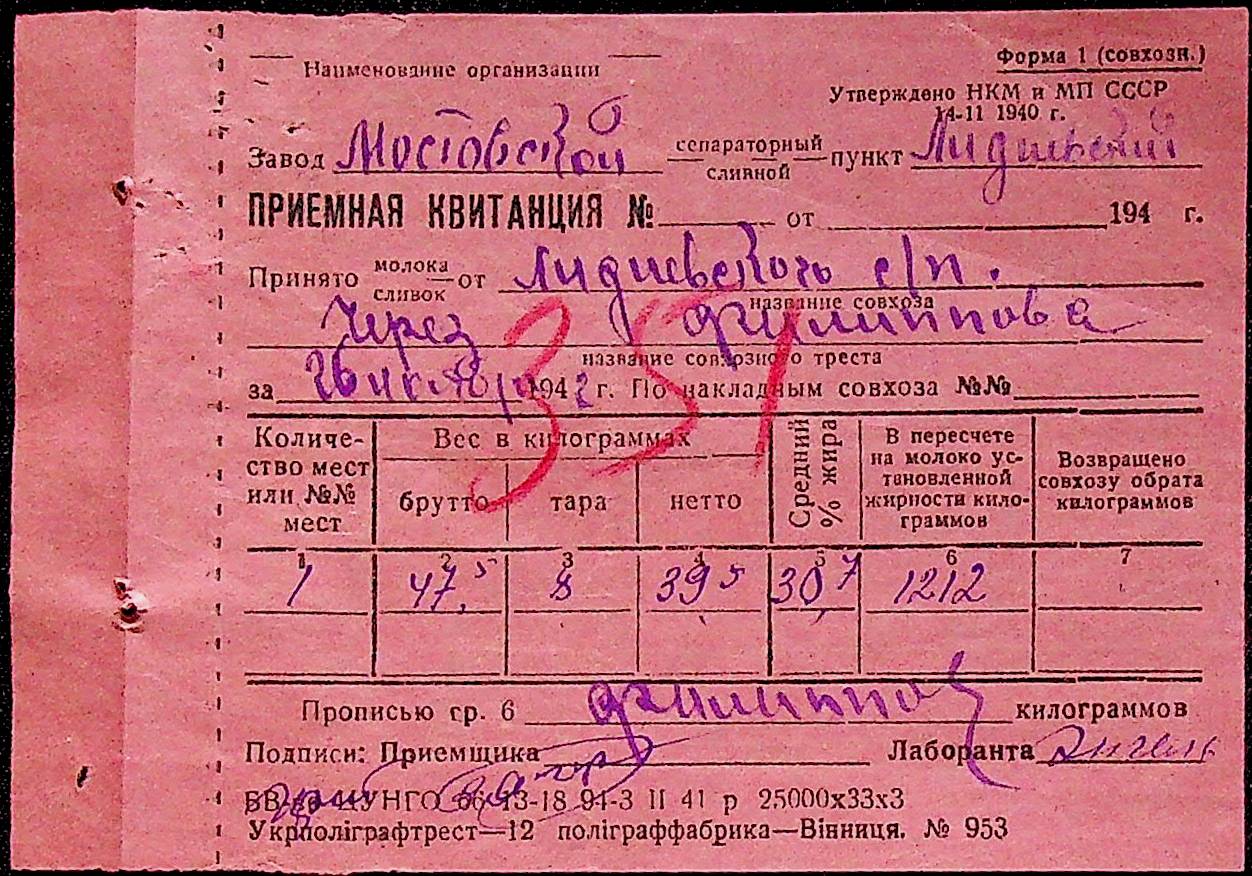 Форма 1 (совхозн.)
Наименование организации
Утверждено НКМ и МП СССР
14-11 1940 г.
Завод Мостовской сепараторный сливной пункт Лидиевский
ПРИЕМНАЯ КВИТАНЦИЯ № от 194 г.
Принято молока сливок от Лидиевского с/п.
название совхоза
Через Филиппова
название совхозного треста
за 26 октября 1942 г. По накладным совхоза №№
351
Количе-
ство мест
или №№
мест
Вес в килограммах
брутто тара нетто
Средний
% жира
В пересчете
на молоко ус-
тановленной
жирности кило-
граммов
Возвращено
совхозу обрата
килограммов
1 2 3 4 5 6 7
1 47,5 8 39 5 30,7 1212
Прописью гр. 6 Филиппов килограммов
Подписи: Приемщика Лаборанта
13-18 94-3 II 41 р 25000х33х3
Укрполіграфтрест—12 поліграффабрика—Вінниця. № 953